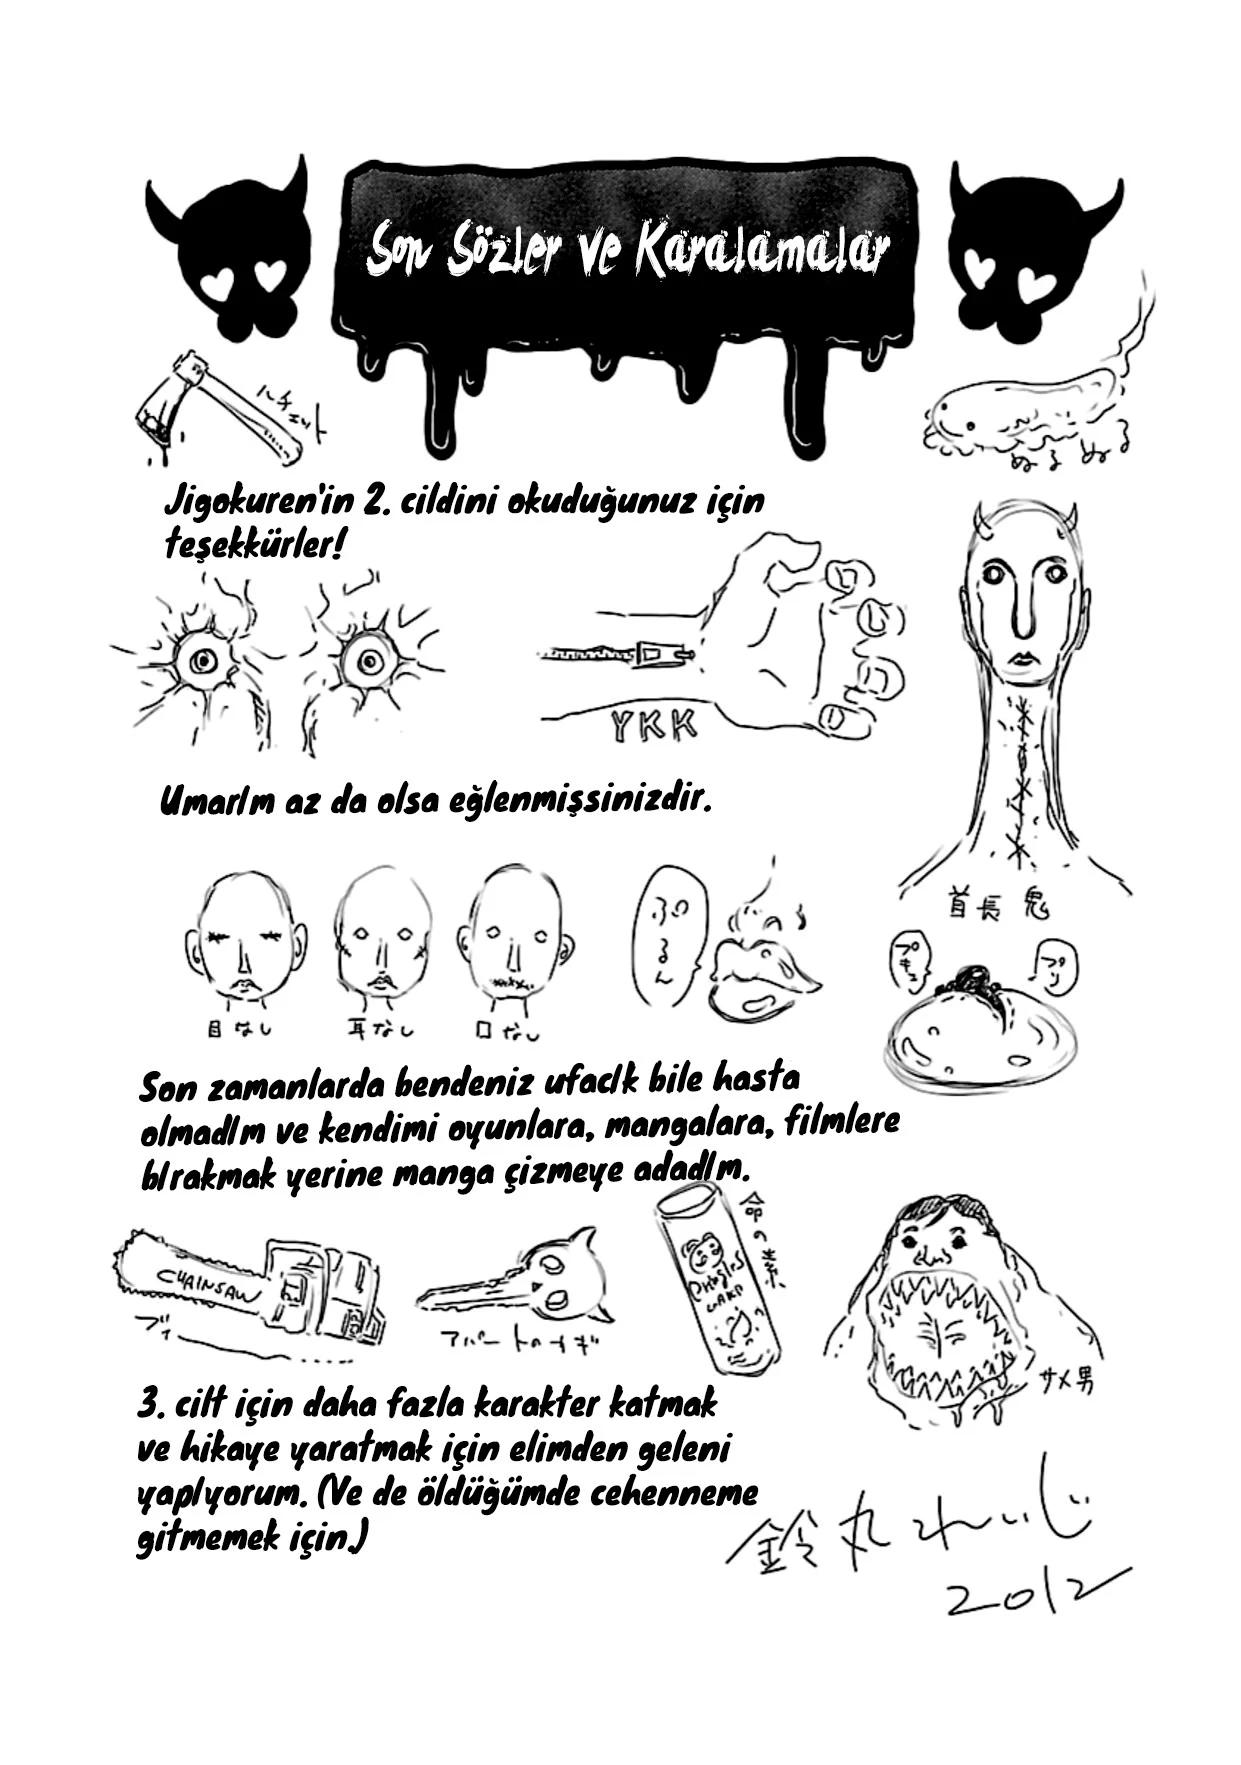 Son Sözler ve Karalamalar
ハチェット
ぬるぬる
Jigokuren'in 2. cildini okuduğunuz için
teşekkürler!
YKK
Umarım az da olsa eğlenmişsinizdir.
首長鬼
目なし
耳なし
口なし
ぷるん
プキュ
プリ
Son zamanlarda bendeniz ufacık bile hasta
olmadım ve kendimi oyunlara, mangalara, filmlere
bırakmak yerine manga çizmeye adadım.
CHAINSAW
アパートのカギ
命の素
サメ男
3. cilt için daha fazla karakter katmak
ve hikaye yaratmak için elimden geleni
yapıyorum. (Ve de öldüğümde cehenneme
gitmemek için.)
鈴丸れいじ
2012